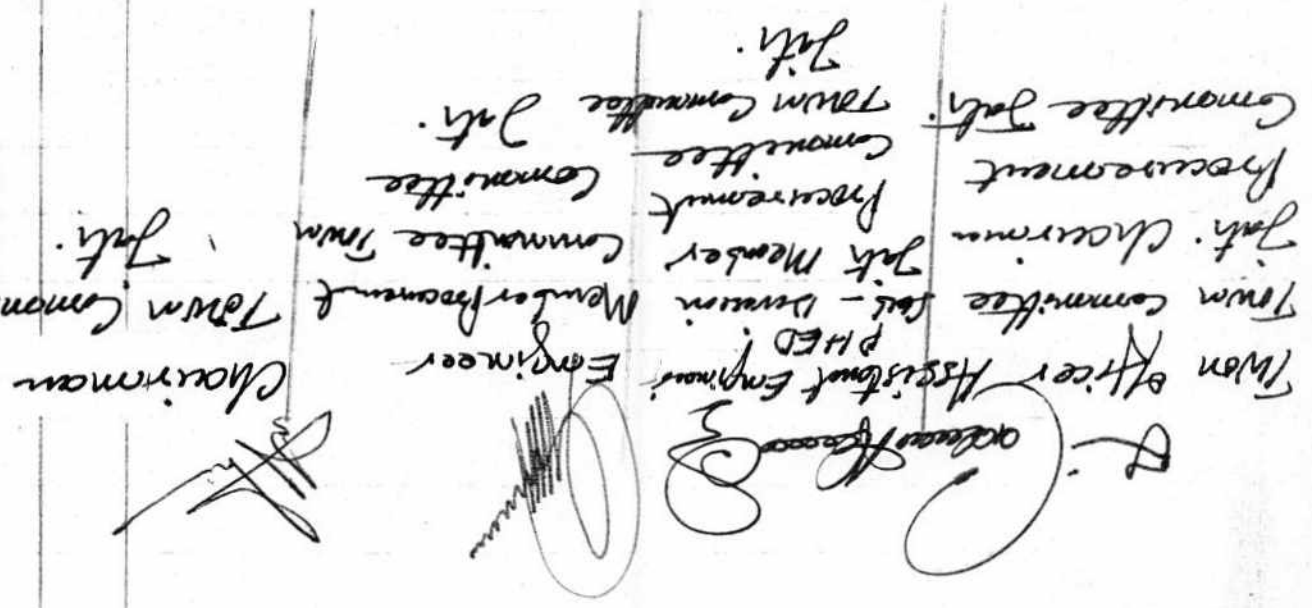 Twon Officer
Town Committee
Jati. Chairman
Procurement
Committee Jati.
Assistant Engineer
PHED
Sub-Division
Jati Member
Procurement
Committee
Town Committee
Jati.
Engineer
Member Procurement
Committee Town
Committee
Jati.
Chairman
Town Common
Jati.